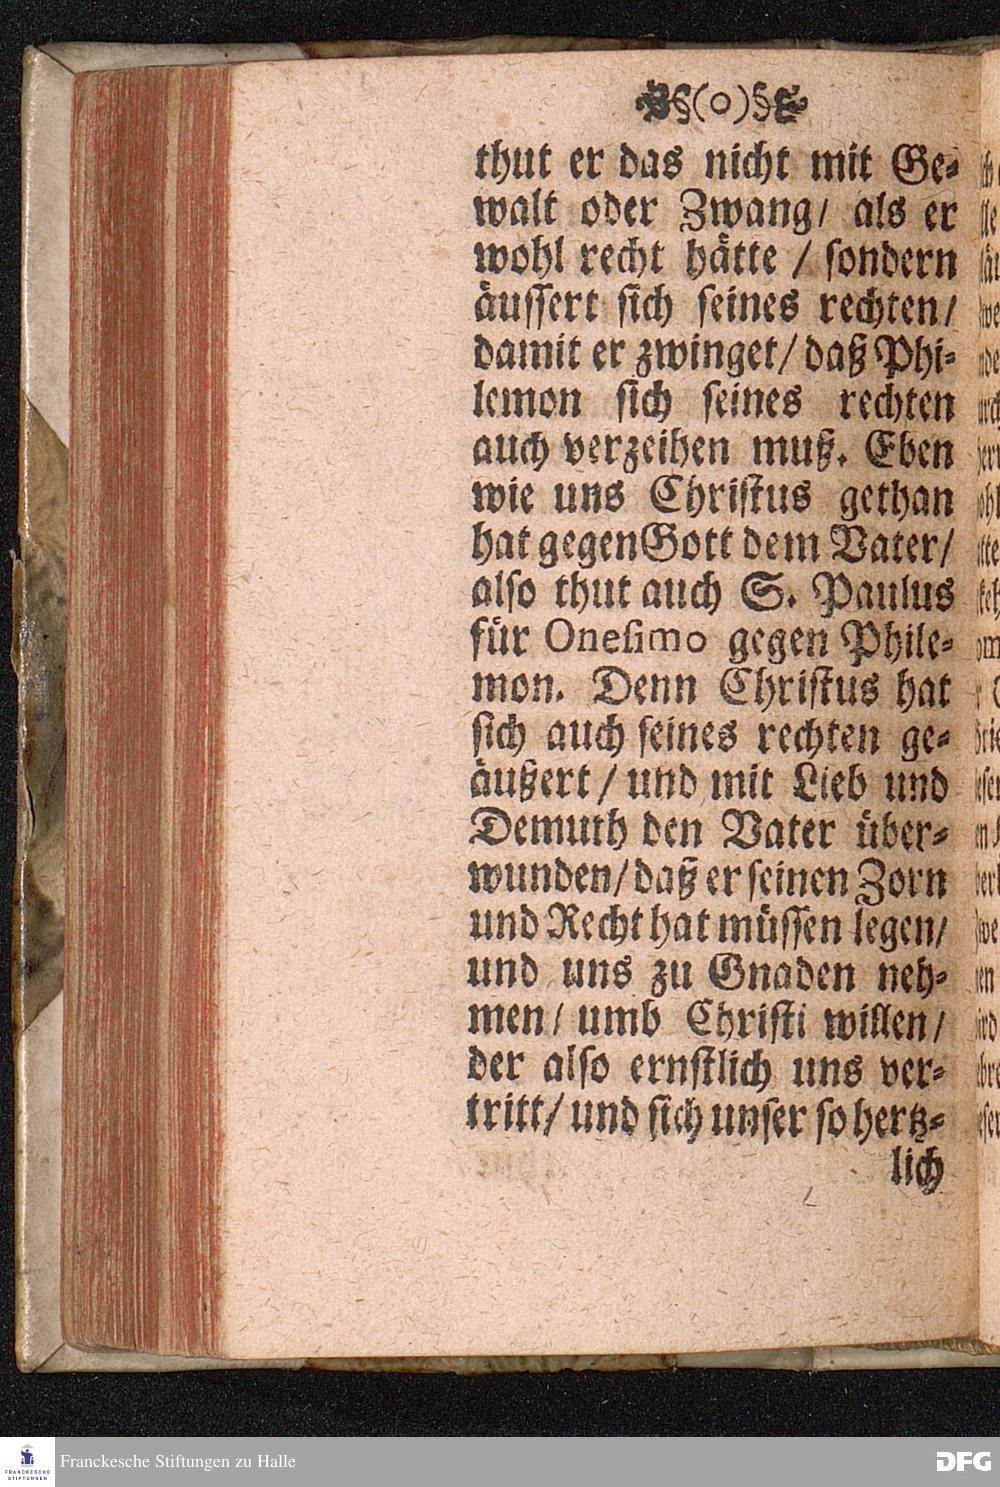 §(o)§
thut er das nicht mit Ge-
walt oder Zwang/ als er
wohl recht hätte / sondern
äussert sich seines rechten/
damit er zwinget/ daß Phi-
lemon sich seines rechten
auch verzeihen muß. Eben
wie uns Christus gethan
hat gegen Gott dem Vater/
also thut auch S. Paulus
für Onesimo gegen Phile-
mon. Denn Christus hat
sich auch seines rechten ge-
äußert / und mit Lieb und
Demuth den Vater über-
wunden/ daß er seinen Zorn
und Recht hat müssen legen/
und uns zu Gnaden neh-
men/ umb Christi willen/
der also ernstlich uns ver-
tritt/ und sich unser so hertz-
lich
FRANCKESCHE STIFTUNGEN
Franckesche Stiftungen zu Halle
DFG